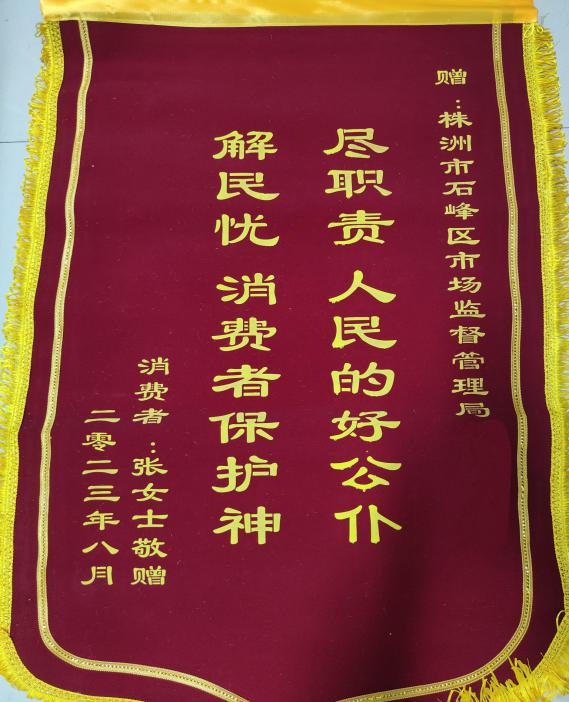 赠：株洲市石峰区市场监督管理局
尽职责 人民的好公仆
解民忧 消费者保护神
消费者：张女士敬赠
二零二三年八月